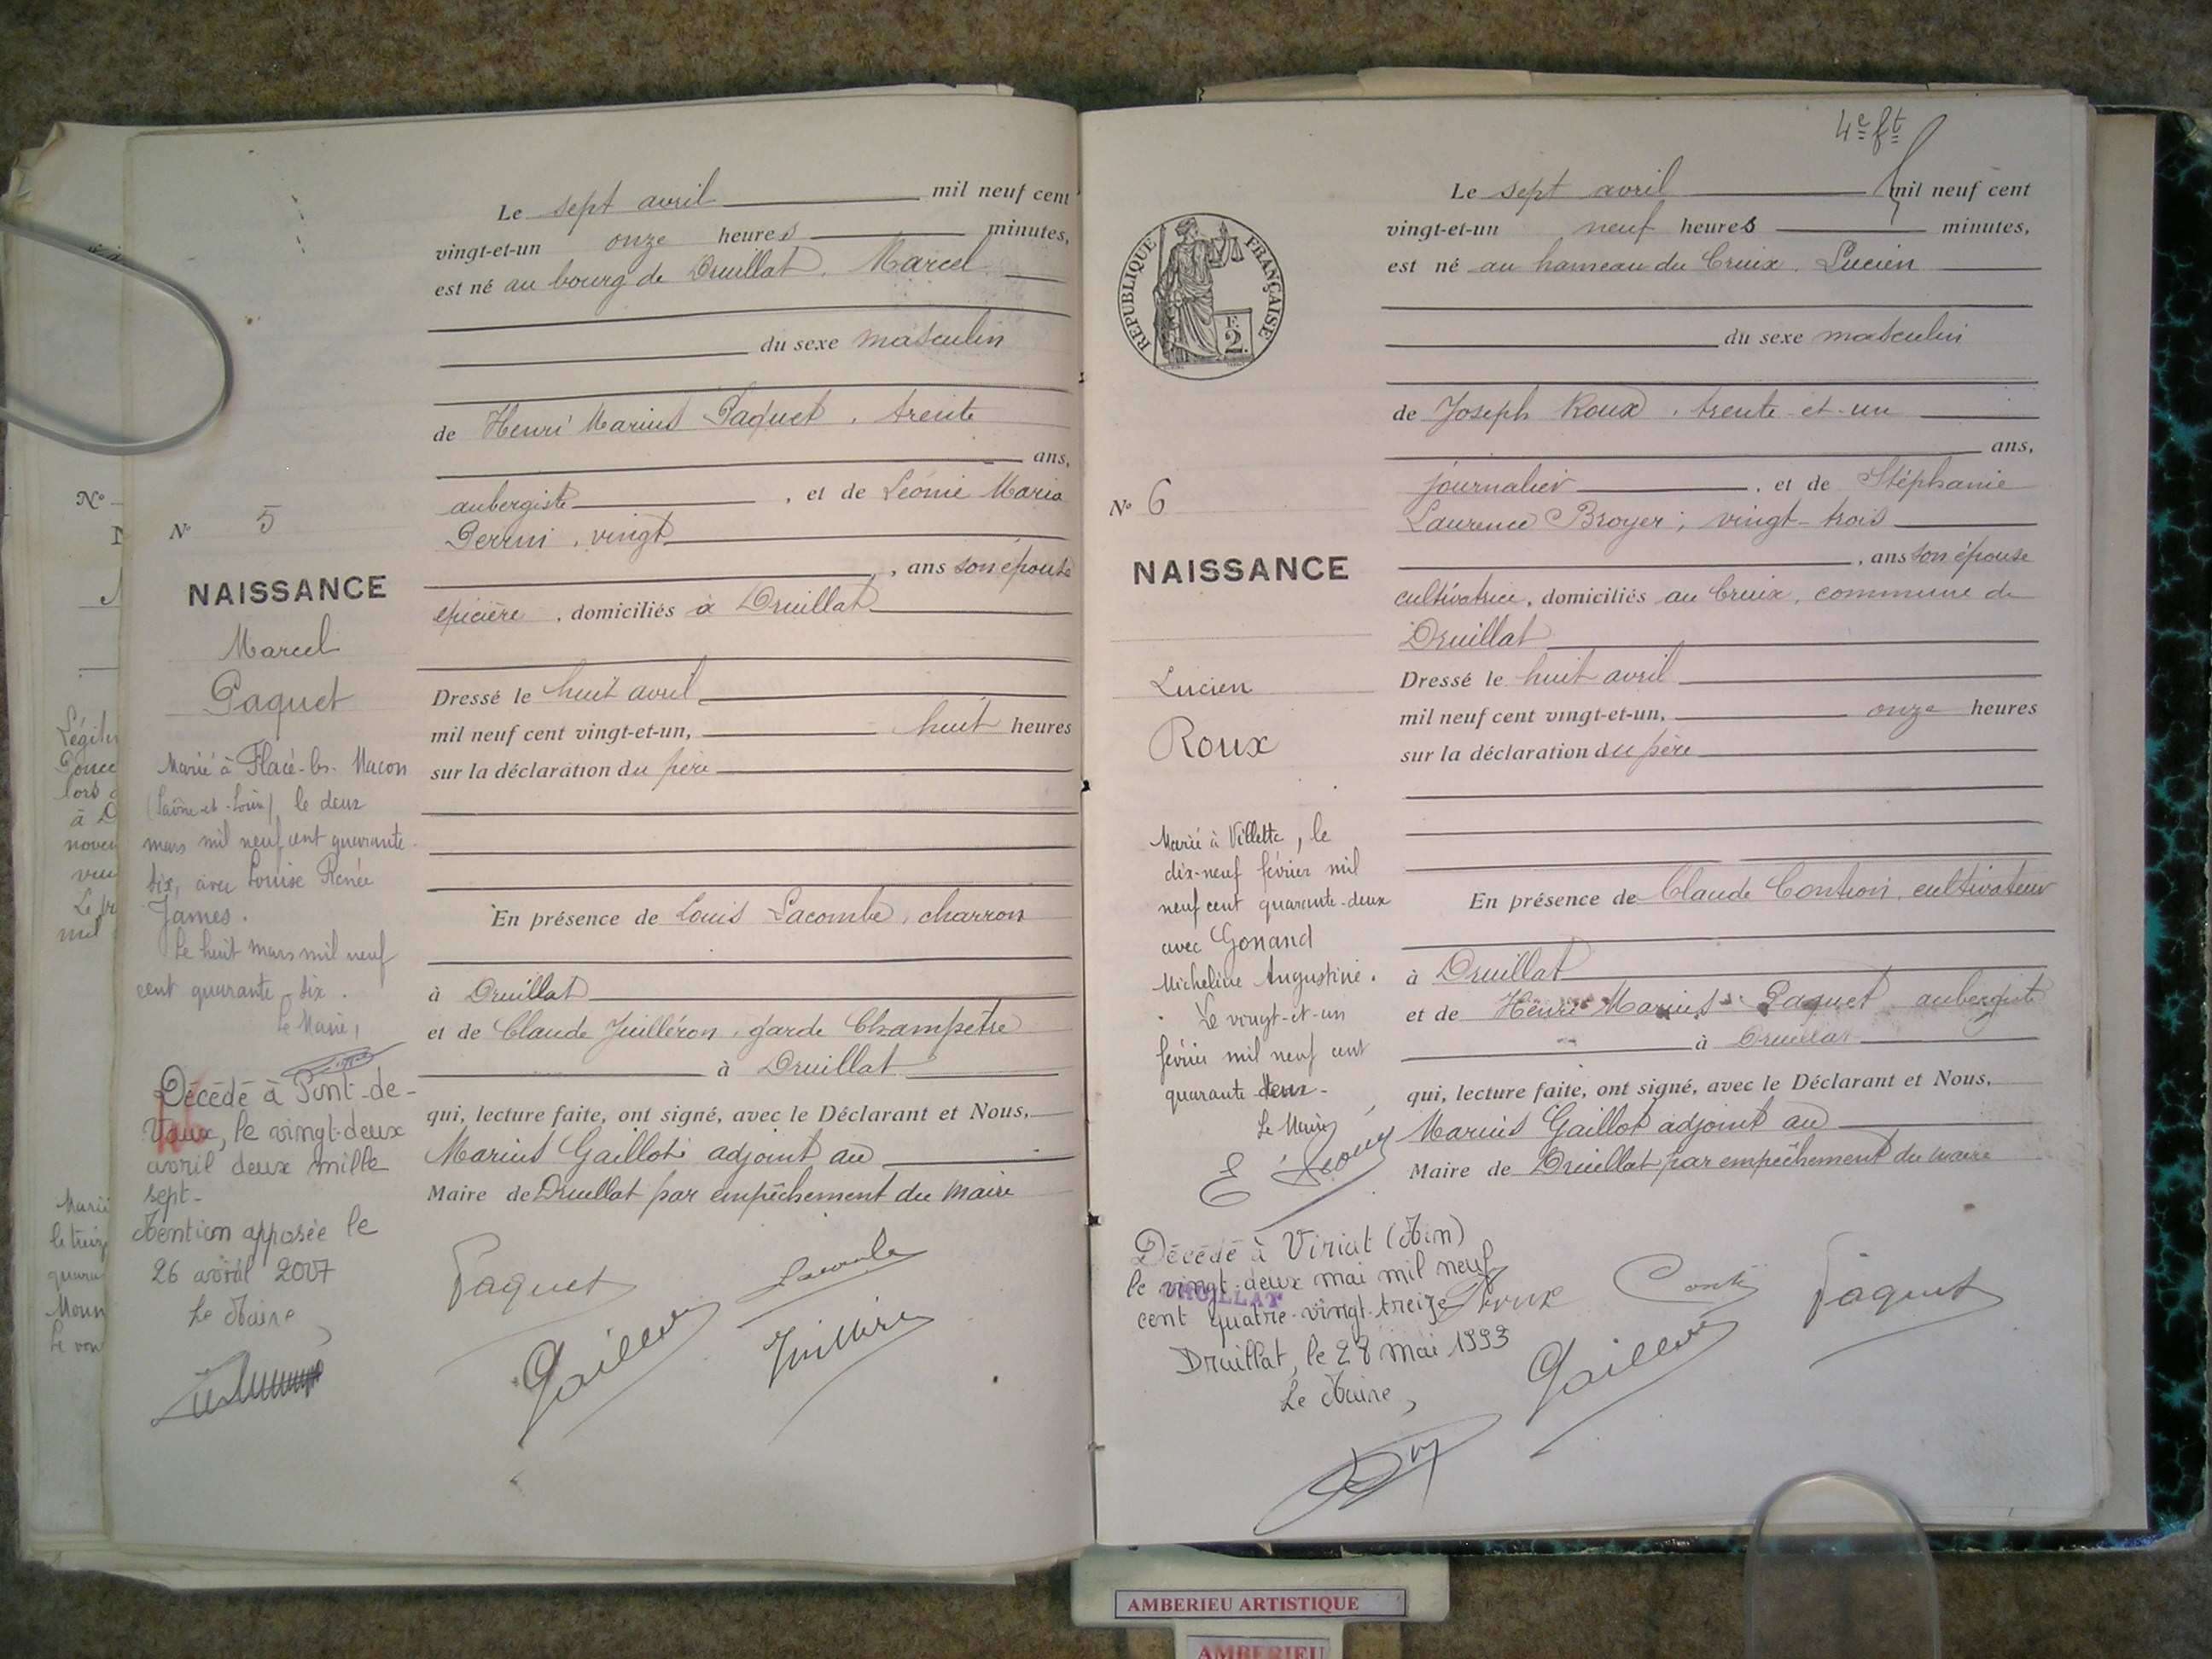 Le sept avril mil neuf cent
vingt-et-un onze heures minutes,
est né au bourg de Druillat, Marcel
du sexe masculin
de Henri Marius Paquet, trente
ans,
aubergiste, et de Léonie Maria
Perrin, vingt
, ans son épouse
épicière, domiciliés à Druillat
Dressé le huit avril
mil neuf cent vingt-et-un, huit heures
sur la déclaration du père
En présence de Louis Lacombe, charron
à Druillat
et de Claude Juilléron, garde Champêtre
à Druillat
qui, lecture faite, ont signé, avec le Déclarant et Nous,
Marius Gaillot adjoint au
Maire de Druillat par empêchement du maire
Paquet
Lacombe
N° 5
NAISSANCE
Marcel
Paquet
Marié à Flacé-les-Macon
(Saône-et-Loire) le deux
mars mil neuf cent quarante
six, avec Louise Renée
James.
Le huit mars mil neuf
cent quarante-six.
Le Maire,
Décédé à Pont-de-
Vaux, le vingt-deux
avril deux mille
sept-
Mention apposée le
26 avril 2007
Le Maire,
N°
Légiti
lors
à D
novem
mil
quara
4e ft
Le sept avril mil neuf cent
vingt-et-un neuf heures minutes,
est né au hameau du Cruix, Lucien
du sexe masculin
de Joseph Roux, trente-et-un
ans,
journalier, et de Stéphanie
Laurence Broyer, vingt-trois
, ans son épouse
cultivatrice, domiciliés au Cruix, commune de
Druillat
Dressé le huit avril
mil neuf cent vingt-et-un, onze heures
sur la déclaration du père
En présence de Claude cultivateur
à Druillat
et de Henri Marius Paquet aubergiste
à Druillat
qui, lecture faite, ont signé, avec le Déclarant et Nous,
Marius Gaillot adjoint au
Maire de Druillat par empêchement du maire
Roux
Paquet
REPUBLIQUE FRANÇAISE
F.
2.
N° 6
NAISSANCE
Lucien
Roux
Marié à Villette, le
dix-neuf février mil
neuf cent quarante-deux
avec Gonand
Micheline Augustine.
Le vingt-et-un
février mil neuf cent
quarante deux-
Le Maire,
Décédé à Viriat (Ain)
le vingt-deux mai mil neuf
cent quatre-vingt-treize
DRUILLAT
Druillat, le 28 mai 1993
Le Maire,
AMBERIEU ARTISTIQUE
AMBERIEU